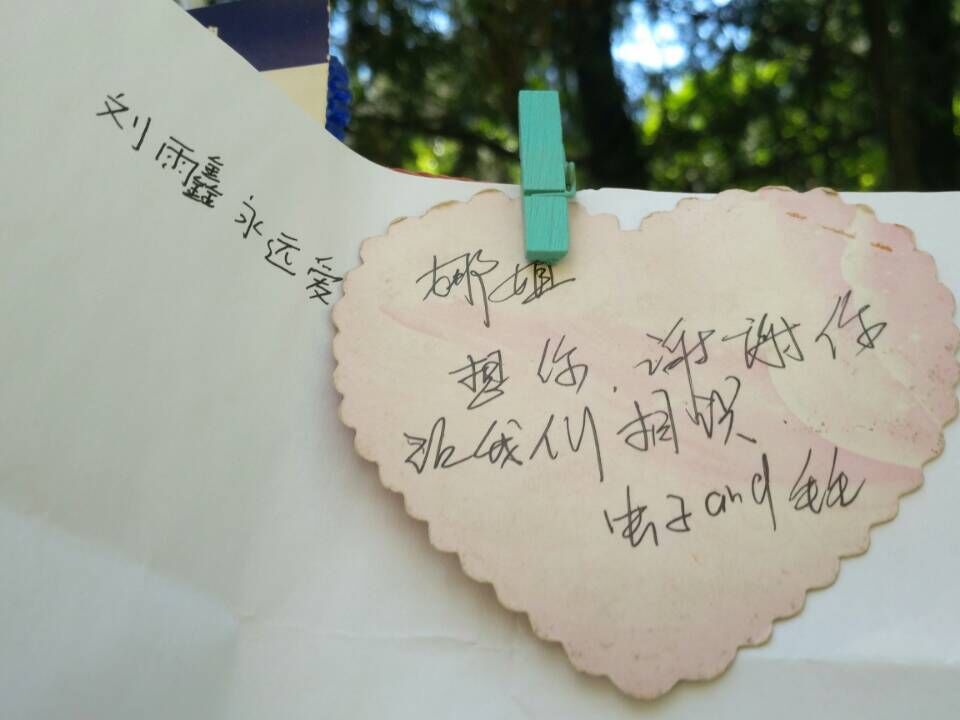 刘雨鑫永远爱
娜姐
想你.谢谢你
让我们相识.
虫子and毛毛